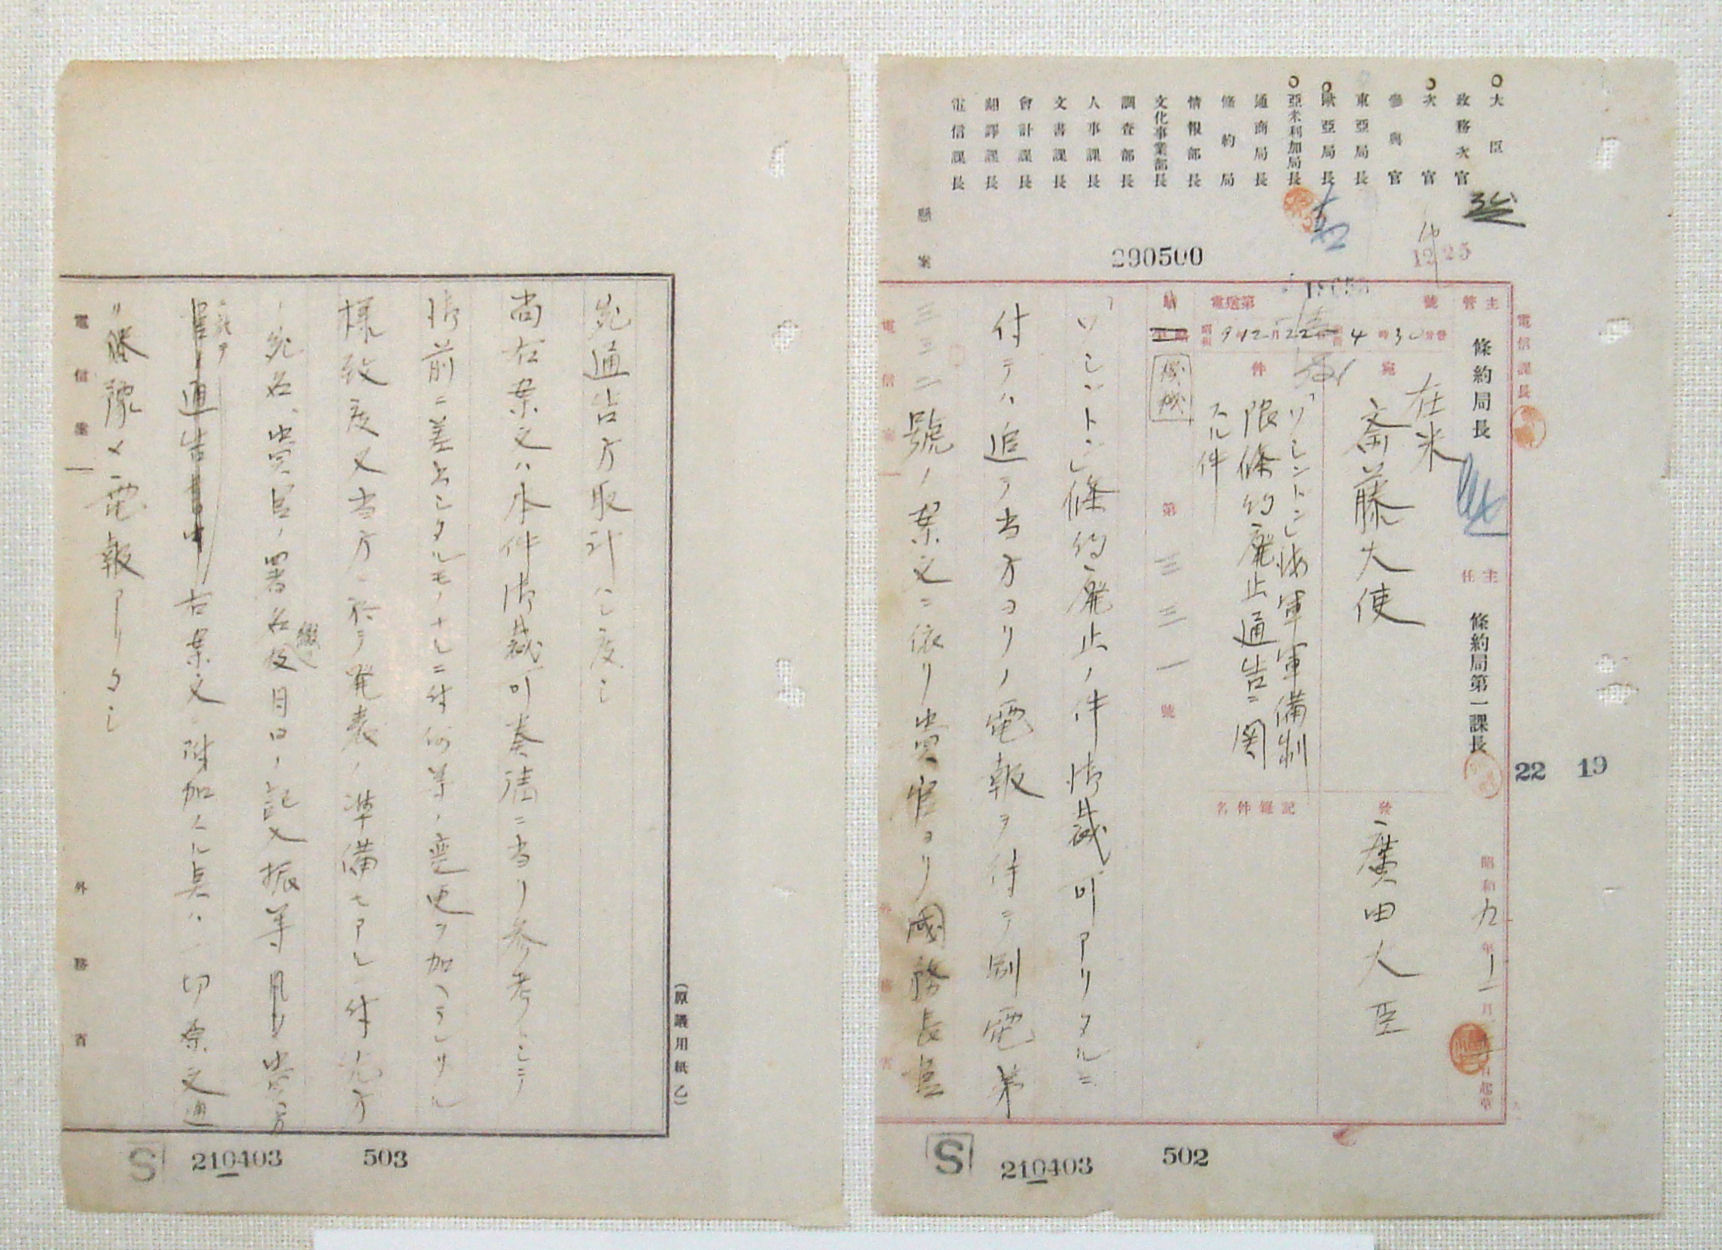 大臣
政務次官
次官
參與官
東亞局長
歐亞局長
亞米利加局長
通商局長
條約局
情報部長
文化事業部長
調査部長
人事課長
文書課長
會計課長
飜譯課長
電信課長
懸案
290500
12 25
電信課長
主管
條約局長
主任
條約局第一課長
昭和九年
月
日起草
22 19
在米
斎藤大使
宛
發
廣田大臣
電送第
號
昭和9年12月22日
4時30分發
件
「ワシントン」海軍軍備制
限條約廃止通告ニ関
スル件
記録件名
機械
第三三一號
「ワシントン」條約廃止ノ件御裁可アリタルニ
付テハ追テ当方ヨリノ電報ヲ待テ別電第
三三二號ノ案文ニ依リ貴官ヨリ國務長官
電信案
外務省
S
210403
502
宛通告方取計ハレ度シ
尚右案文ハ本件御裁可奏請ニ当リ参考トシテ
御前ニ差出シタルモノナルニ付何等ノ変更ヲ加ヘラレサル
様致度又当方ニ於テ発表ノ準備モアルニ付先方
ノ宛名、貴官ノ署名及月日ノ記入振等貴方
ニ於テ
通告
右案文ニ附加スル点ハ一切原文通
電報アリタシ
電信案
外務省
(原議用紙乙)
S
210403
503